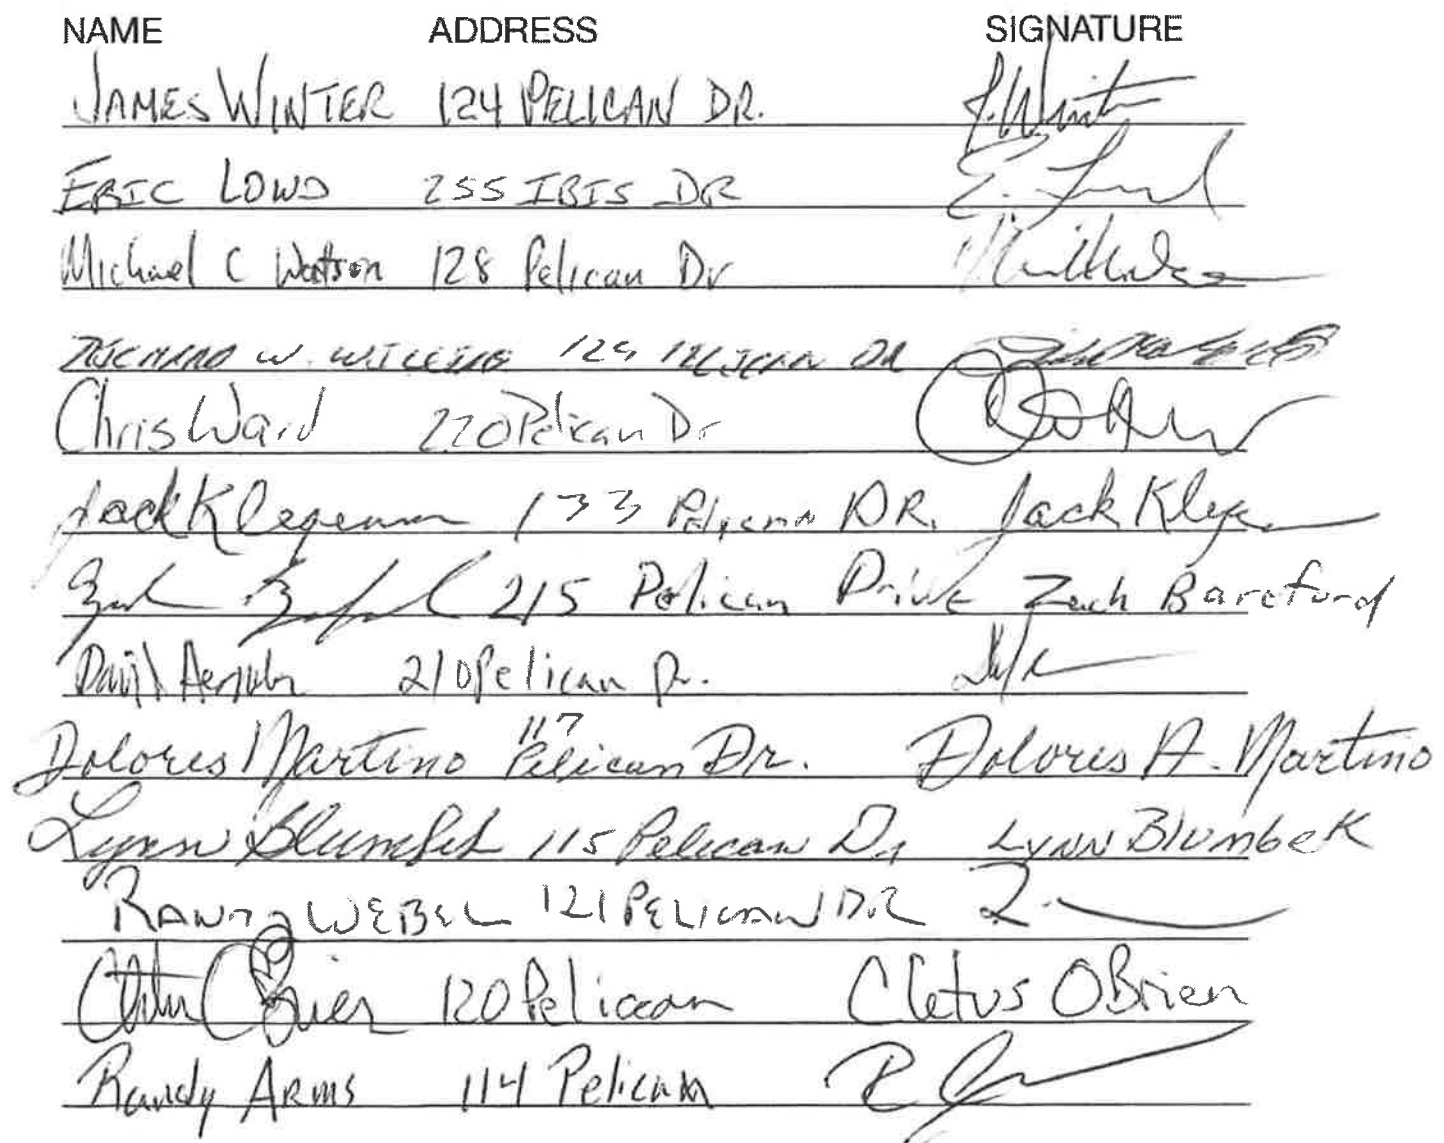 NAME ADDRESS SIGNATURE
JAMES WINTER 124 PELICAN DR. J. Winter
ERIC LOWD 255 IBIS DR E. Lowd
Michael C Watson 128 Pelican Dr
RICHARD W. 129 PELICAN DR
Chris Ward 220 Pelican Dr
Jack Klegeman 133 Pelican DR. Jack Klege
215 Pelican Drive Zach Bareford
David 210 Pelican Dr.
117
Dolores Martino Pelican Dr. Dolores A. Martino
Lynn Blumbek 115 Pelican Dr Lynn Blumbek
RANDY WEBEL 121 PELICAN DR
120 Peliccan Cletus OBrien
Randy Arms 114 Pelican